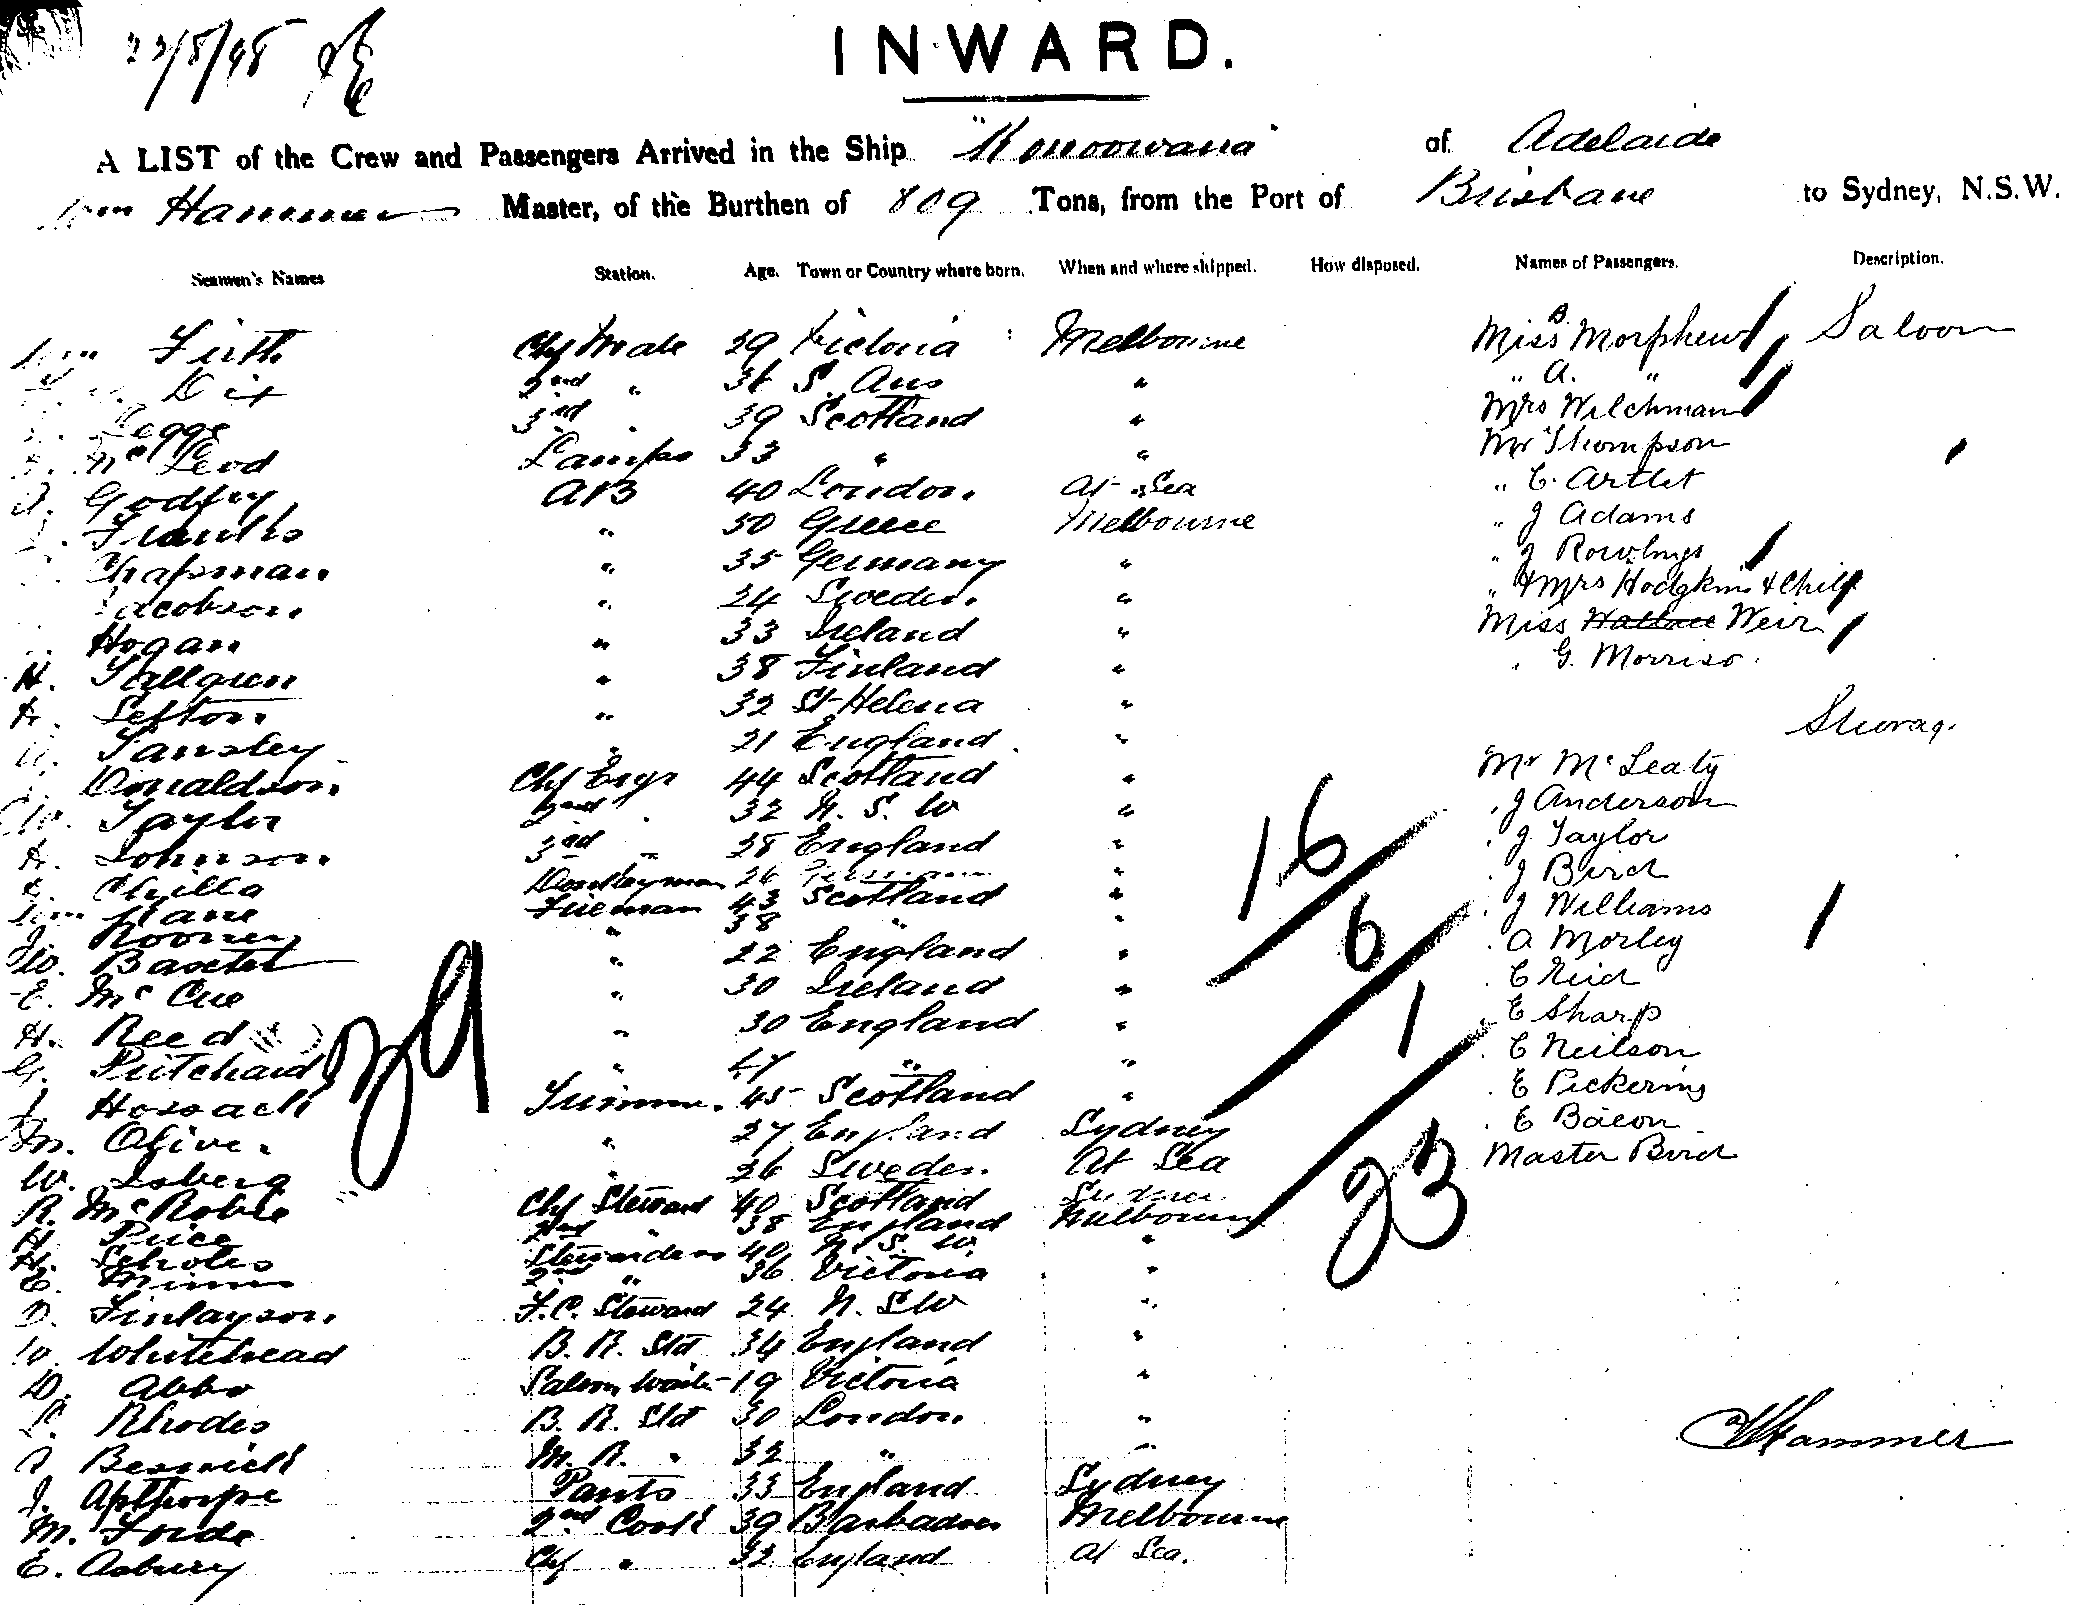 23/8/98
INWARD.
A LIST of the Crew and Passengers Arrived in the Ship "Konoowarra" of Adelaide
Hammer Master, of the Burthen of 809 Tons, from the Port of Brisbane to Sydney, N.S.W.
Seamen's Names Station. Age. Town or Country where born. When and where shipped. How disposed. Names of Passengers. Description.
Firth Chf Mate 39 Victoria Melbourne Miss B. Morphew Saloon
Dix 2nd " 36 S. Aus " " A. "
Legge 3rd " 39 Scotland " Mrs Welchman
McLeod Lamps 33 " " Mr Thompson
Godfry AB 40 London At Sea " C. Artlet
" 50 Greece Melbourne " J Adams
Chapman " 35 Germany " " J Rowlings
Jacobson " 24 Sweden " " & Mrs Hodgkins & Child
Hogan " 33 Ireland " Miss Wallace Weir
H. " 38 Finland " " G. Morriso
A. Sefton " 32 St Helena "
Tansley " 21 England "
Donaldson Chf Engr 44 Scotland " Mr McLeaty
W. Taylor 2nd " 32 N. S. W " " J Anderson
A. Johnson 3rd " 28 England " " J Taylor
Donkeyman 26 " " J Bird
Kane Fireman 43 Scotland " " J Williams
J. Rooney " 38 " " " A Morley
W. Baxter " 22 England " " E Reid
E. McCue " 30 Ireland " " E Sharp
H. Reed " 30 England " " E Neilson
G. Pritchard " 47 " " " E Pickering
Hossack Trimmer 45 Scotland " " E Bacon
M. Olive " 27 England Sydney Master Bird
W. Isberg " 26 Sweden At Sea
R. McRobie Chf Steward 40 Scotland Sydney
H. Price 2nd " 38 England Melbourne
H. Scholes Stewardess 40 N. S. W. "
E. 2nd " 36 Victoria "
D. Finlayson F.C. Steward 24 N. S W "
W. Whitehead B. R. Std 34 England "
W. Abbo Saloon Waiter 19 Victoria "
Rhodes B. R. Std 30 London "
Beswick M. R. " 32 " "
J. Apthorpe Pants 33 England Sydney
M. Forde 2nd Cook 39 Barbadoes Melbourne
E. Asbury Chf " 32 England At Sea.
39
16
6
1
23
Hammer